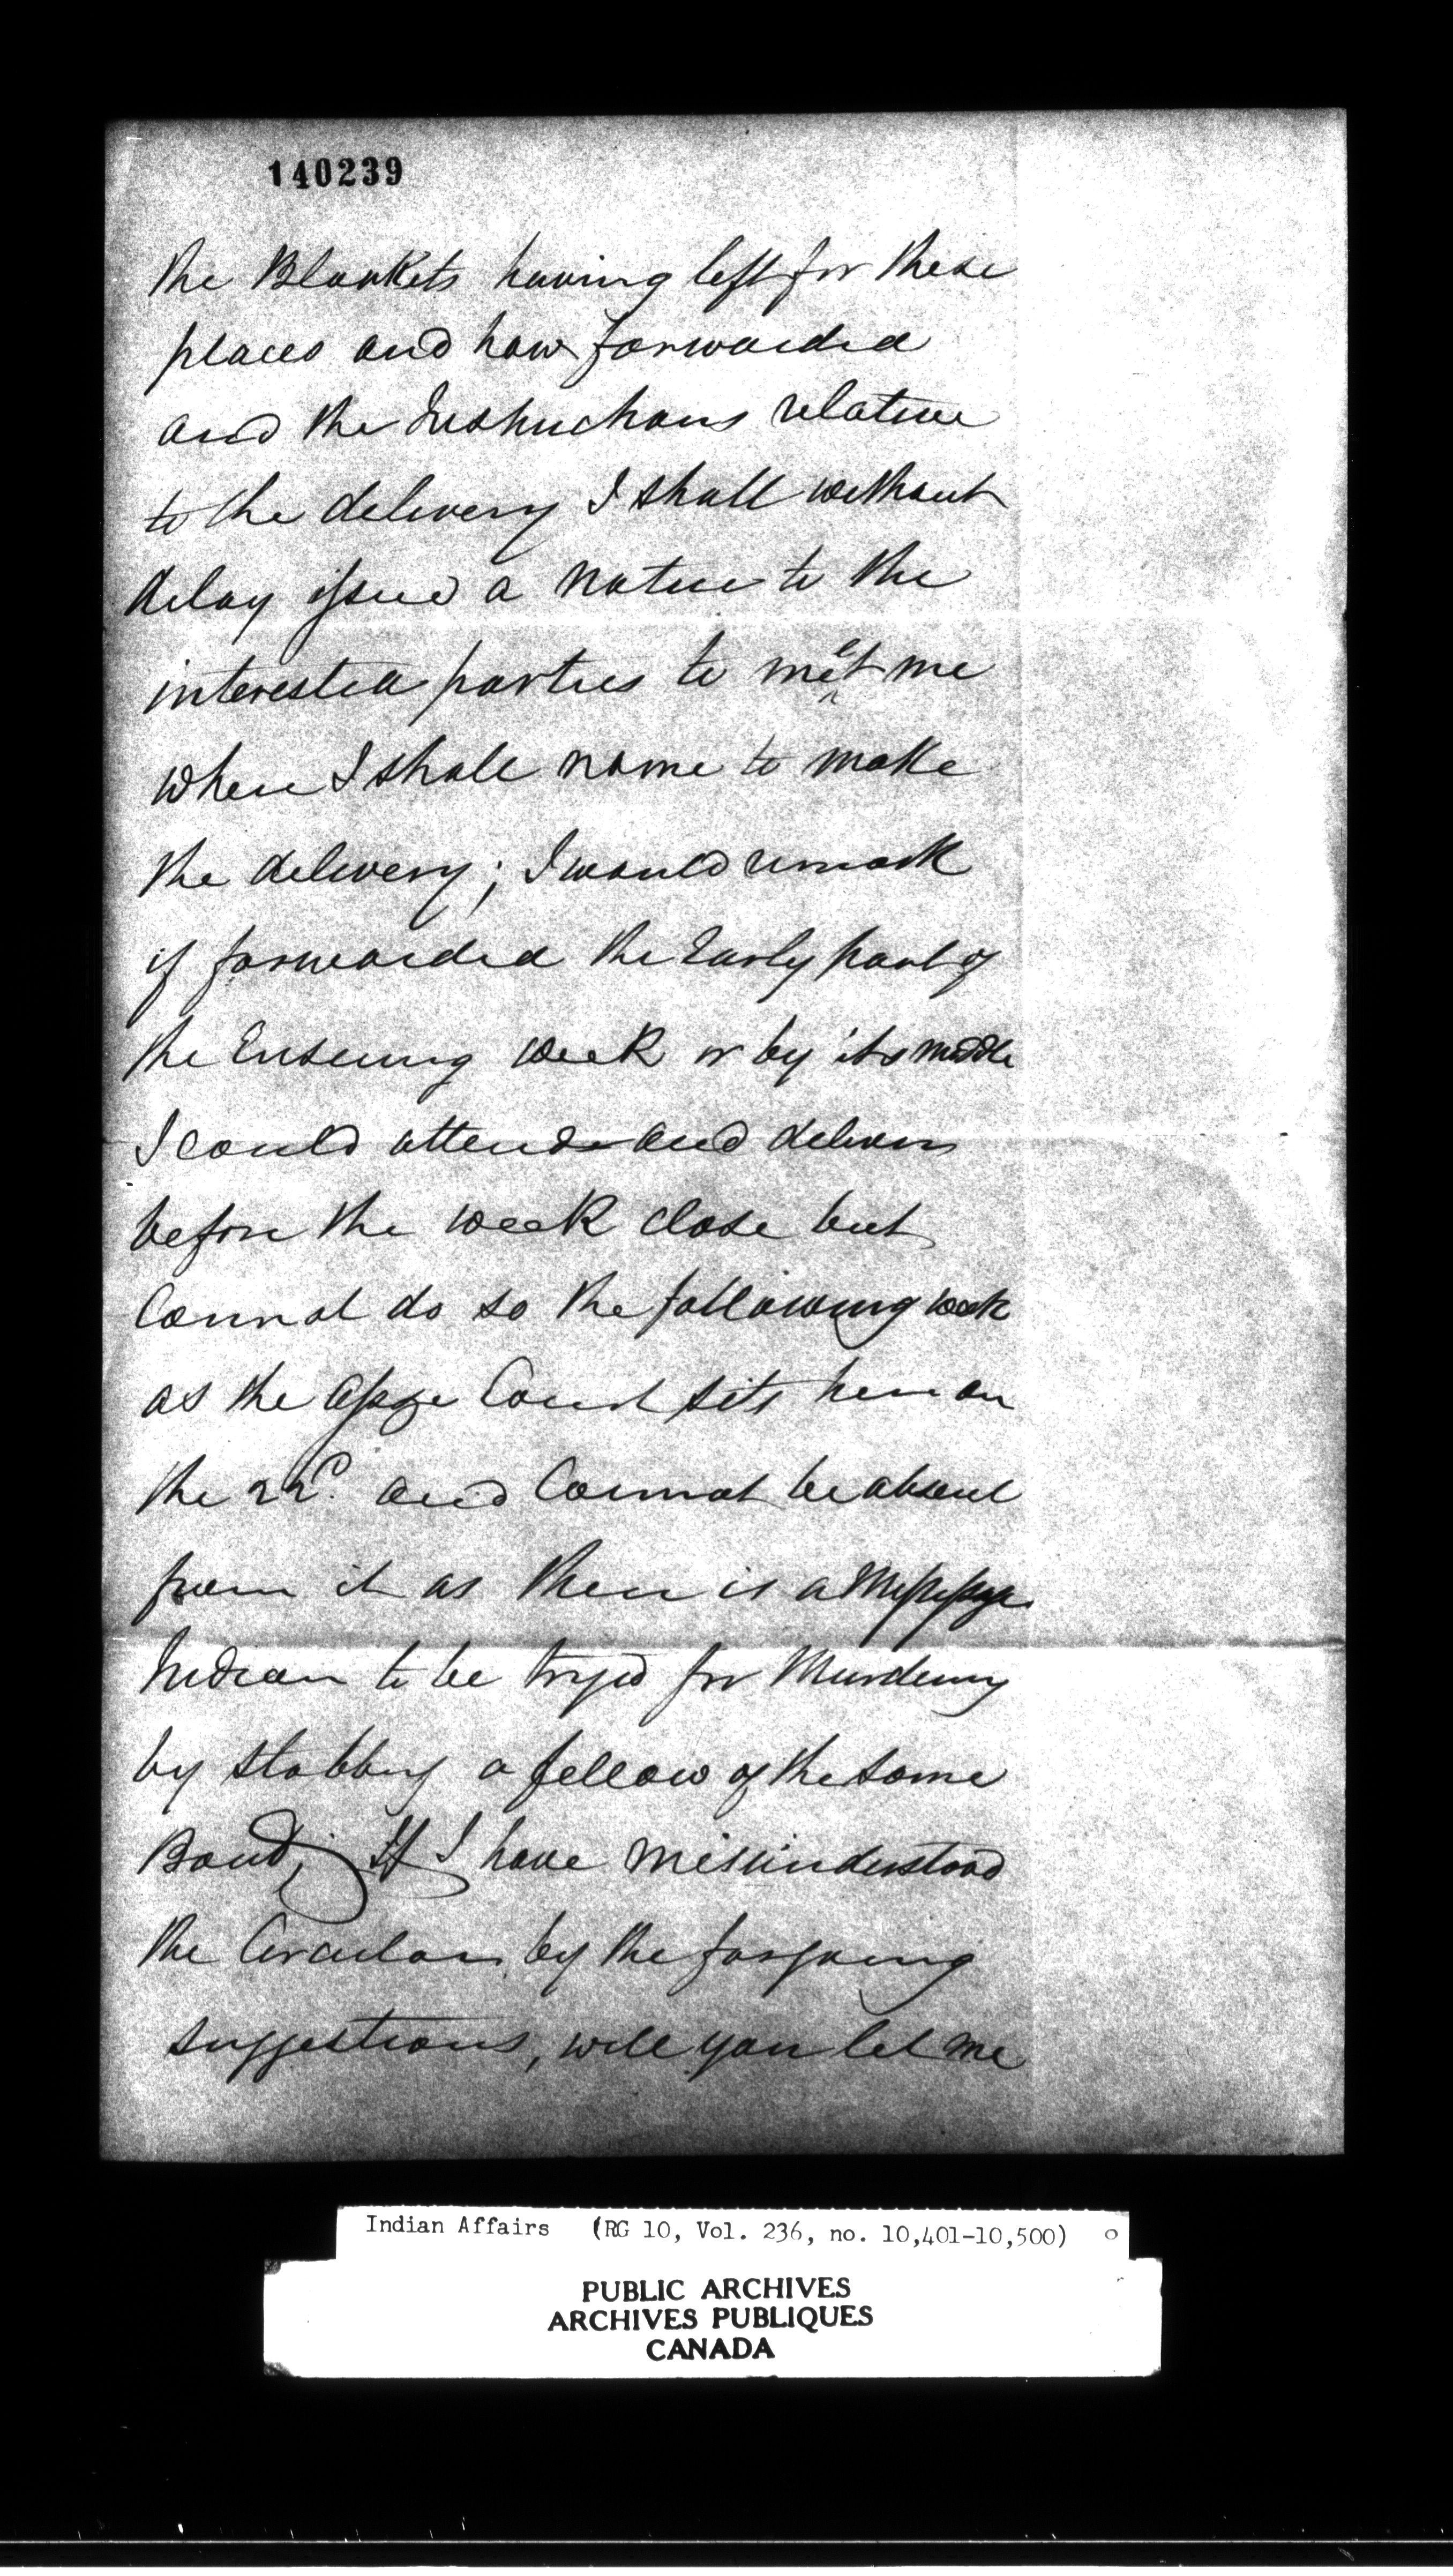 140239
the Blankets having left for these
places and how forwarded
and the Instructions relative
to the delivery I shall without
delay issue a notice to the
interested parties to meet me
where I shall name to make
the delivery; I would remark
if forwarded the Early part of
the Ensuing week or by its middle
I could attend and deliver
before the week close but
Cannot do so the following week
as the Assize Court sits here on
the 22d. and Cannot be absent
from it as there is a Missisaga
Indian to be tryed for Murdering
by stabbing a fellow of the same
Band; If I have misunderstood
the Circular by the forgoing
suggestions, will you let me
Indian Affairs (RG 10, Vol. 236, no. 10,401-10,500)
PUBLIC ARCHIVES
ARCHIVES PUBLIQUES
CANADA